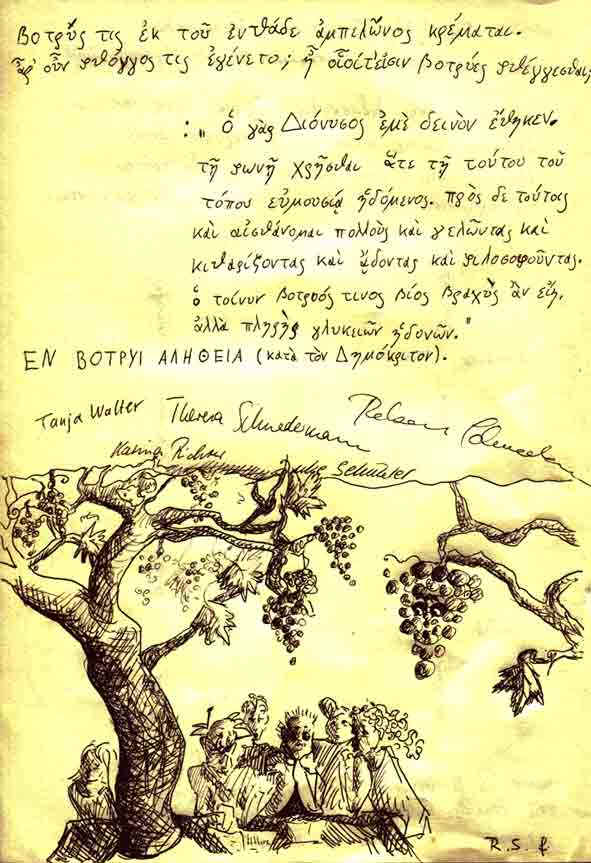 Βοτρῦς τις ἐκ τοῦ ἐνθάδε ἀμπελῶνος κρέμαται.
ἆρ' οὖν φθόγγος τις ἐγένετο; ἢ οἷοί τ' εἰσιν βοτρύες φθέγγεσθαι;
: „ Ὁ γὰρ Διόνυσος ἐμὲ δεινὸν ἔθηκεν
τῇ φωνῇ χρῆσθαι ἅτε τῇ τούτου τοῦ
τόπου εὐμουσίᾳ ἡδόμενος. πρὸς δε τούτοις
καὶ αἰσθάνομαι πολλοὺς καὶ γελῶντας καὶ
κιθαρίζοντας καὶ ᾄδοντας καὶ φιλοσοφοῦντας.
ὁ τοίνυν βοτρυός τινος βίος βραχὺς ἂν εἴη,
ἀλλὰ πλήρης γλυκειῶν ἡδονῶν."
ΕΝ ΒΟΤΡΥΙ ΑΛΗΘΕΙΑ (κατὰ τὸν Δημόκριτον).
Tanja Walter Theresa
Katrina Richter Schlüter
R.S. f.